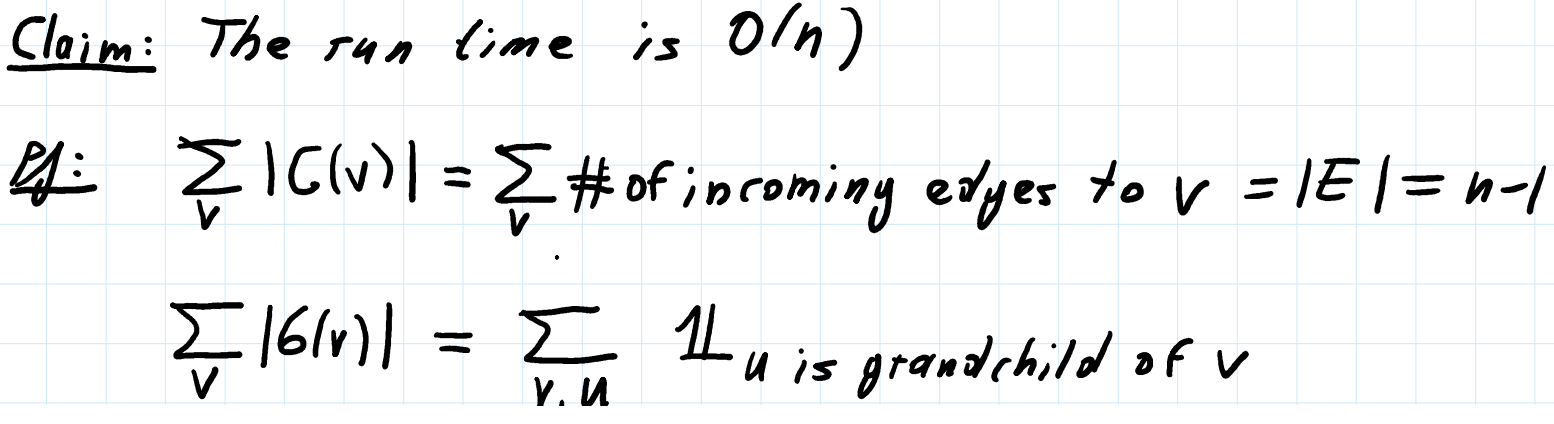 Claim: The run time is O(n)
Pf: ∑_v |C(v)| = ∑_v # of incoming edges to v = |E| = n-1
∑_v |G(v)| = ∑_{v,u} 𝟙_{u is grandchild of v}